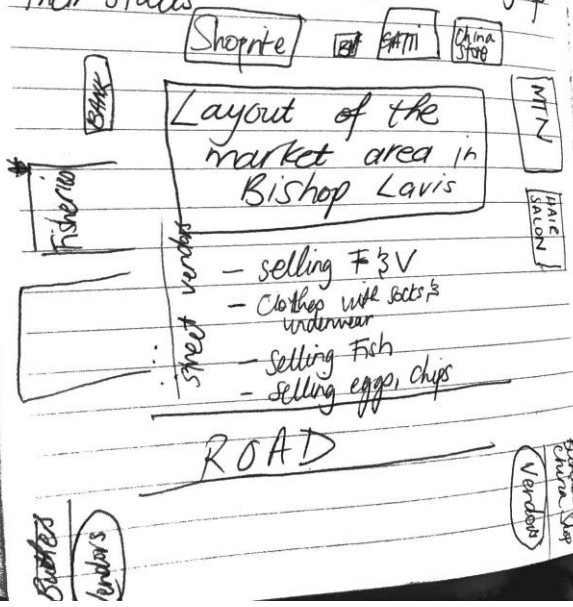 Their stalls
Shoprite
SATTI
China
Store
BANK
MTN
Layout of the
market area in
Bishop Lavis
Fisheries
HAIR
SALON
street vendors
- selling F & V
- Clothes with socks &
underwear
- selling Fish
- selling eggs, chips
ROAD
Vendors
China Shop
Vendors